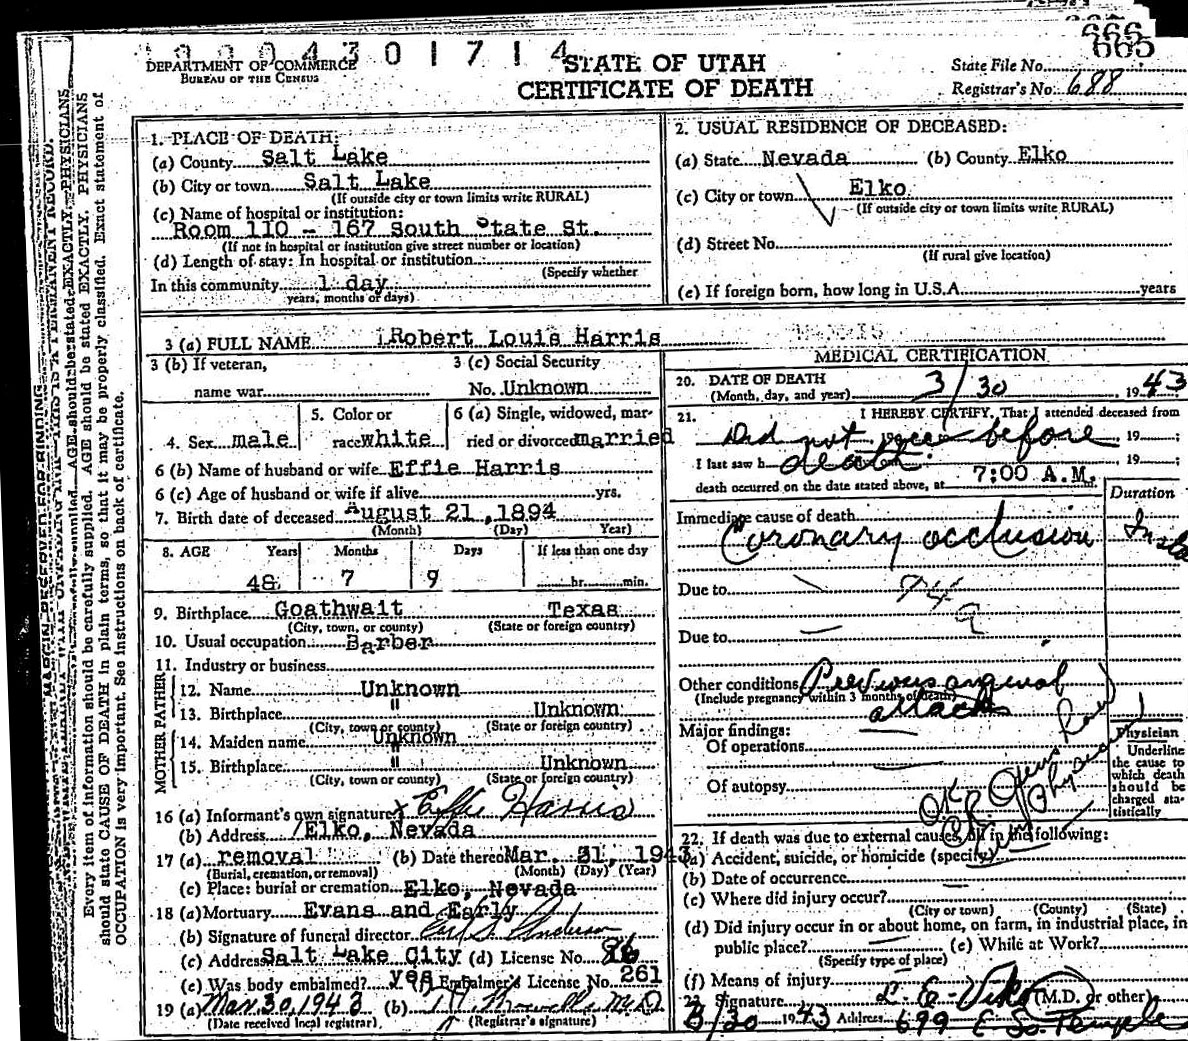 666
665
1 9 0 0 4 3 0 1 7 1 4
DEPARTMENT OF COMMERCE
BUREAU OF THE CENSUS
STATE OF UTAH
CERTIFICATE OF DEATH
State File No.
Registrar's No. 688
1. PLACE OF DEATH:
(a) County Salt Lake
(b) City or town Salt Lake
(If outside city or town limits write RURAL)
(c) Name of hospital or institution:
Room 110 - 167 South State St.
(If not in hospital or institution give street number or location)
(d) Length of stay: In hospital or institution
(Specify whether
In this community 1 day
years, months or days)
2. USUAL RESIDENCE OF DECEASED:
(a) State Nevada (b) County Elko
(c) City or town Elko
(If outside city or town limits write RURAL)
(d) Street No.
(If rural give location)
(e) If foreign born, how long in U.S.A. years
3 (a) FULL NAME Robert Louis Harris
3 (b) If veteran,
name war
3 (c) Social Security
No. Unknown
4. Sex male
5. Color or
race white
6 (a) Single, widowed, mar-
ried or divorced married
6 (b) Name of husband or wife Effie Harris
6 (c) Age of husband or wife if alive yrs.
7. Birth date of deceased August 21, 1894
(Month) (Day) Year)
8. AGE Years Months Days If less than one day
48 7 9 hr. min.
9. Birthplace Goathwait Texas
(City, town, or county) (State or foreign country)
10. Usual occupation Barber
11. Industry or business
FATHER
12. Name Unknown
13. Birthplace " Unknown
(City, town or county) (State or foreign country)
MOTHER
14. Maiden name Unknown
15. Birthplace " Unknown
(City, town or county) (State or foreign country)
16 (a) Informant's own signature x Effie Harris
(b) Address Elko, Nevada
17 (a) removal (b) Date thereof Mar. 31, 1943
(Burial, cremation, or removal) (Month) (Day) (Year)
(c) Place: burial or cremation Elko, Nevada
18 (a) Mortuary Evans and Early
(b) Signature of funeral director Earl S. Anderson
(c) Address Salt Lake City (d) License No. 86
(e) Was body embalmed? yes (f) Embalmer's License No. 261
19 (a) Mar. 30, 1943 (b) M.D.
(Date received local registrar) (Registrar's signature)
MEDICAL CERTIFICATION
20. DATE OF DEATH
(Month, day, and year) 3/30 1943
21. I HEREBY CERTIFY, That I attended deceased from
Did not see before 19 ;
I last saw h death. 19 ;
death occurred on the date stated above, at 7:00 A.M.
Duration
Immediate cause of death
Coronary occlusion
Due to 94
a
Due to
Other conditions Previous anginal
(Include pregnancy within 3 months of death)
attacks
Major findings:
Of operations
Of autopsy
Physician
Underline
the cause to
which death
should be
charged sta-
tistically
OK
22. If death was due to external causes, fill in the following:
(a) Accident, suicide, or homicide (specify)
(b) Date of occurrence
(c) Where did injury occur?
(City or town) (County) (State)
(d) Did injury occur in or about home, on farm, in industrial place, in
public place? (e) While at Work?
(Specify type of place)
(f) Means of injury
23. Signature L. E. Viko (M.D. or other)
3/30 1943 Address 699 E So. Temple
Every item of information should be carefully supplied. AGE should be stated EXACTLY. PHYSICIANS
should state CAUSE OF DEATH in plain terms, so that it may be properly classified. Exact statement of
OCCUPATION is very important. See instructions on back of certificate.